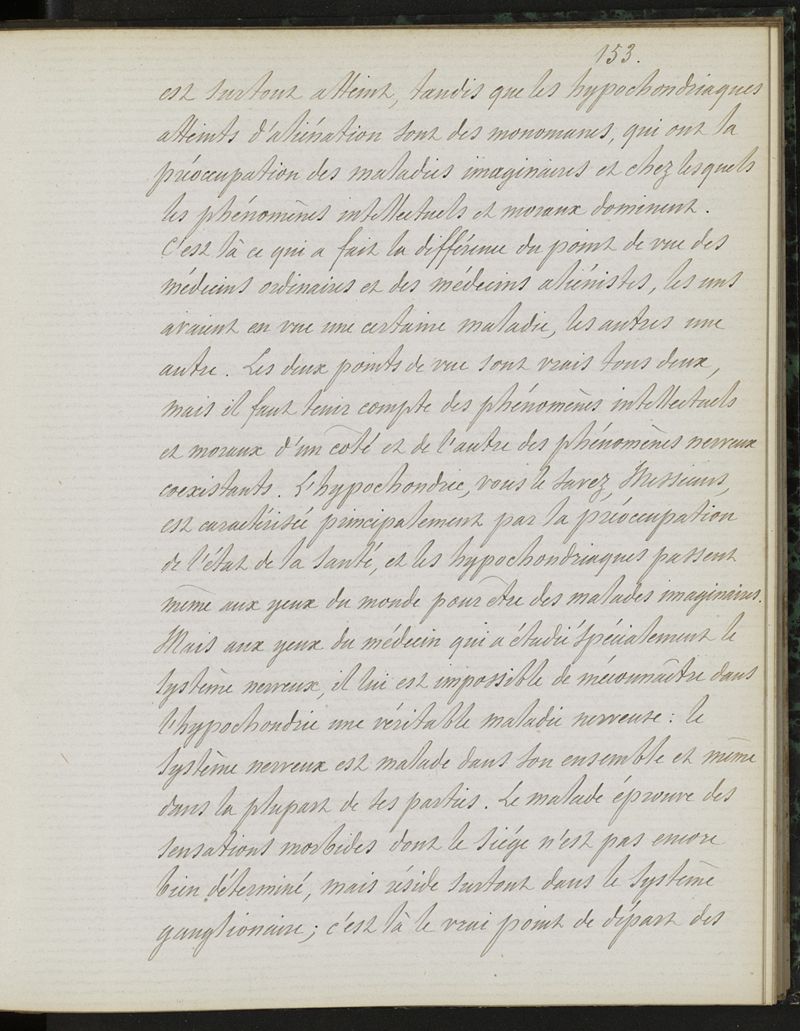 153.
est surtout atteint, tandis que les hypochondriaques
atteints d'aliénation sont des monomanes, qui ont la
préoccupation des maladies imaginaires et chez lesquels
les phénomènes intellectuels et moraux dominent.
C'est là ce qui a fait la différence du point de vue des
médecins ordinaires et des médecins aliénistes, les uns
avaient en vue une certaine maladie, les autres une
autre. Les deux points de vue sont vrais tous deux,
mais il faut tenir compte des phénomènes intellectuels
et moraux d'un côté et de l'autre des phénomènes nerveux
coexistants. L'hypochondrie, vous le savez, Messieurs,
est caractérisée principalement par la préoccupation
de l'état de la santé, et les hypochondriaques passent
même aux yeux du monde pour être des malades imaginaires.
Mais aux yeux du médecin qui a étudié spécialement le
système nerveux, il lui est impossible de méconnaître dans
l'hypochondrie une véritable maladie nerveuse : le
système nerveux est malade dans son ensemble et même
dans la plupart de ses parties. Le malade éprouve des
sensations morbides dont le siége n'est pas encore
bien déterminé, mais réside surtout dans le système
ganglionaire ; c'est là le vrai point de départ des